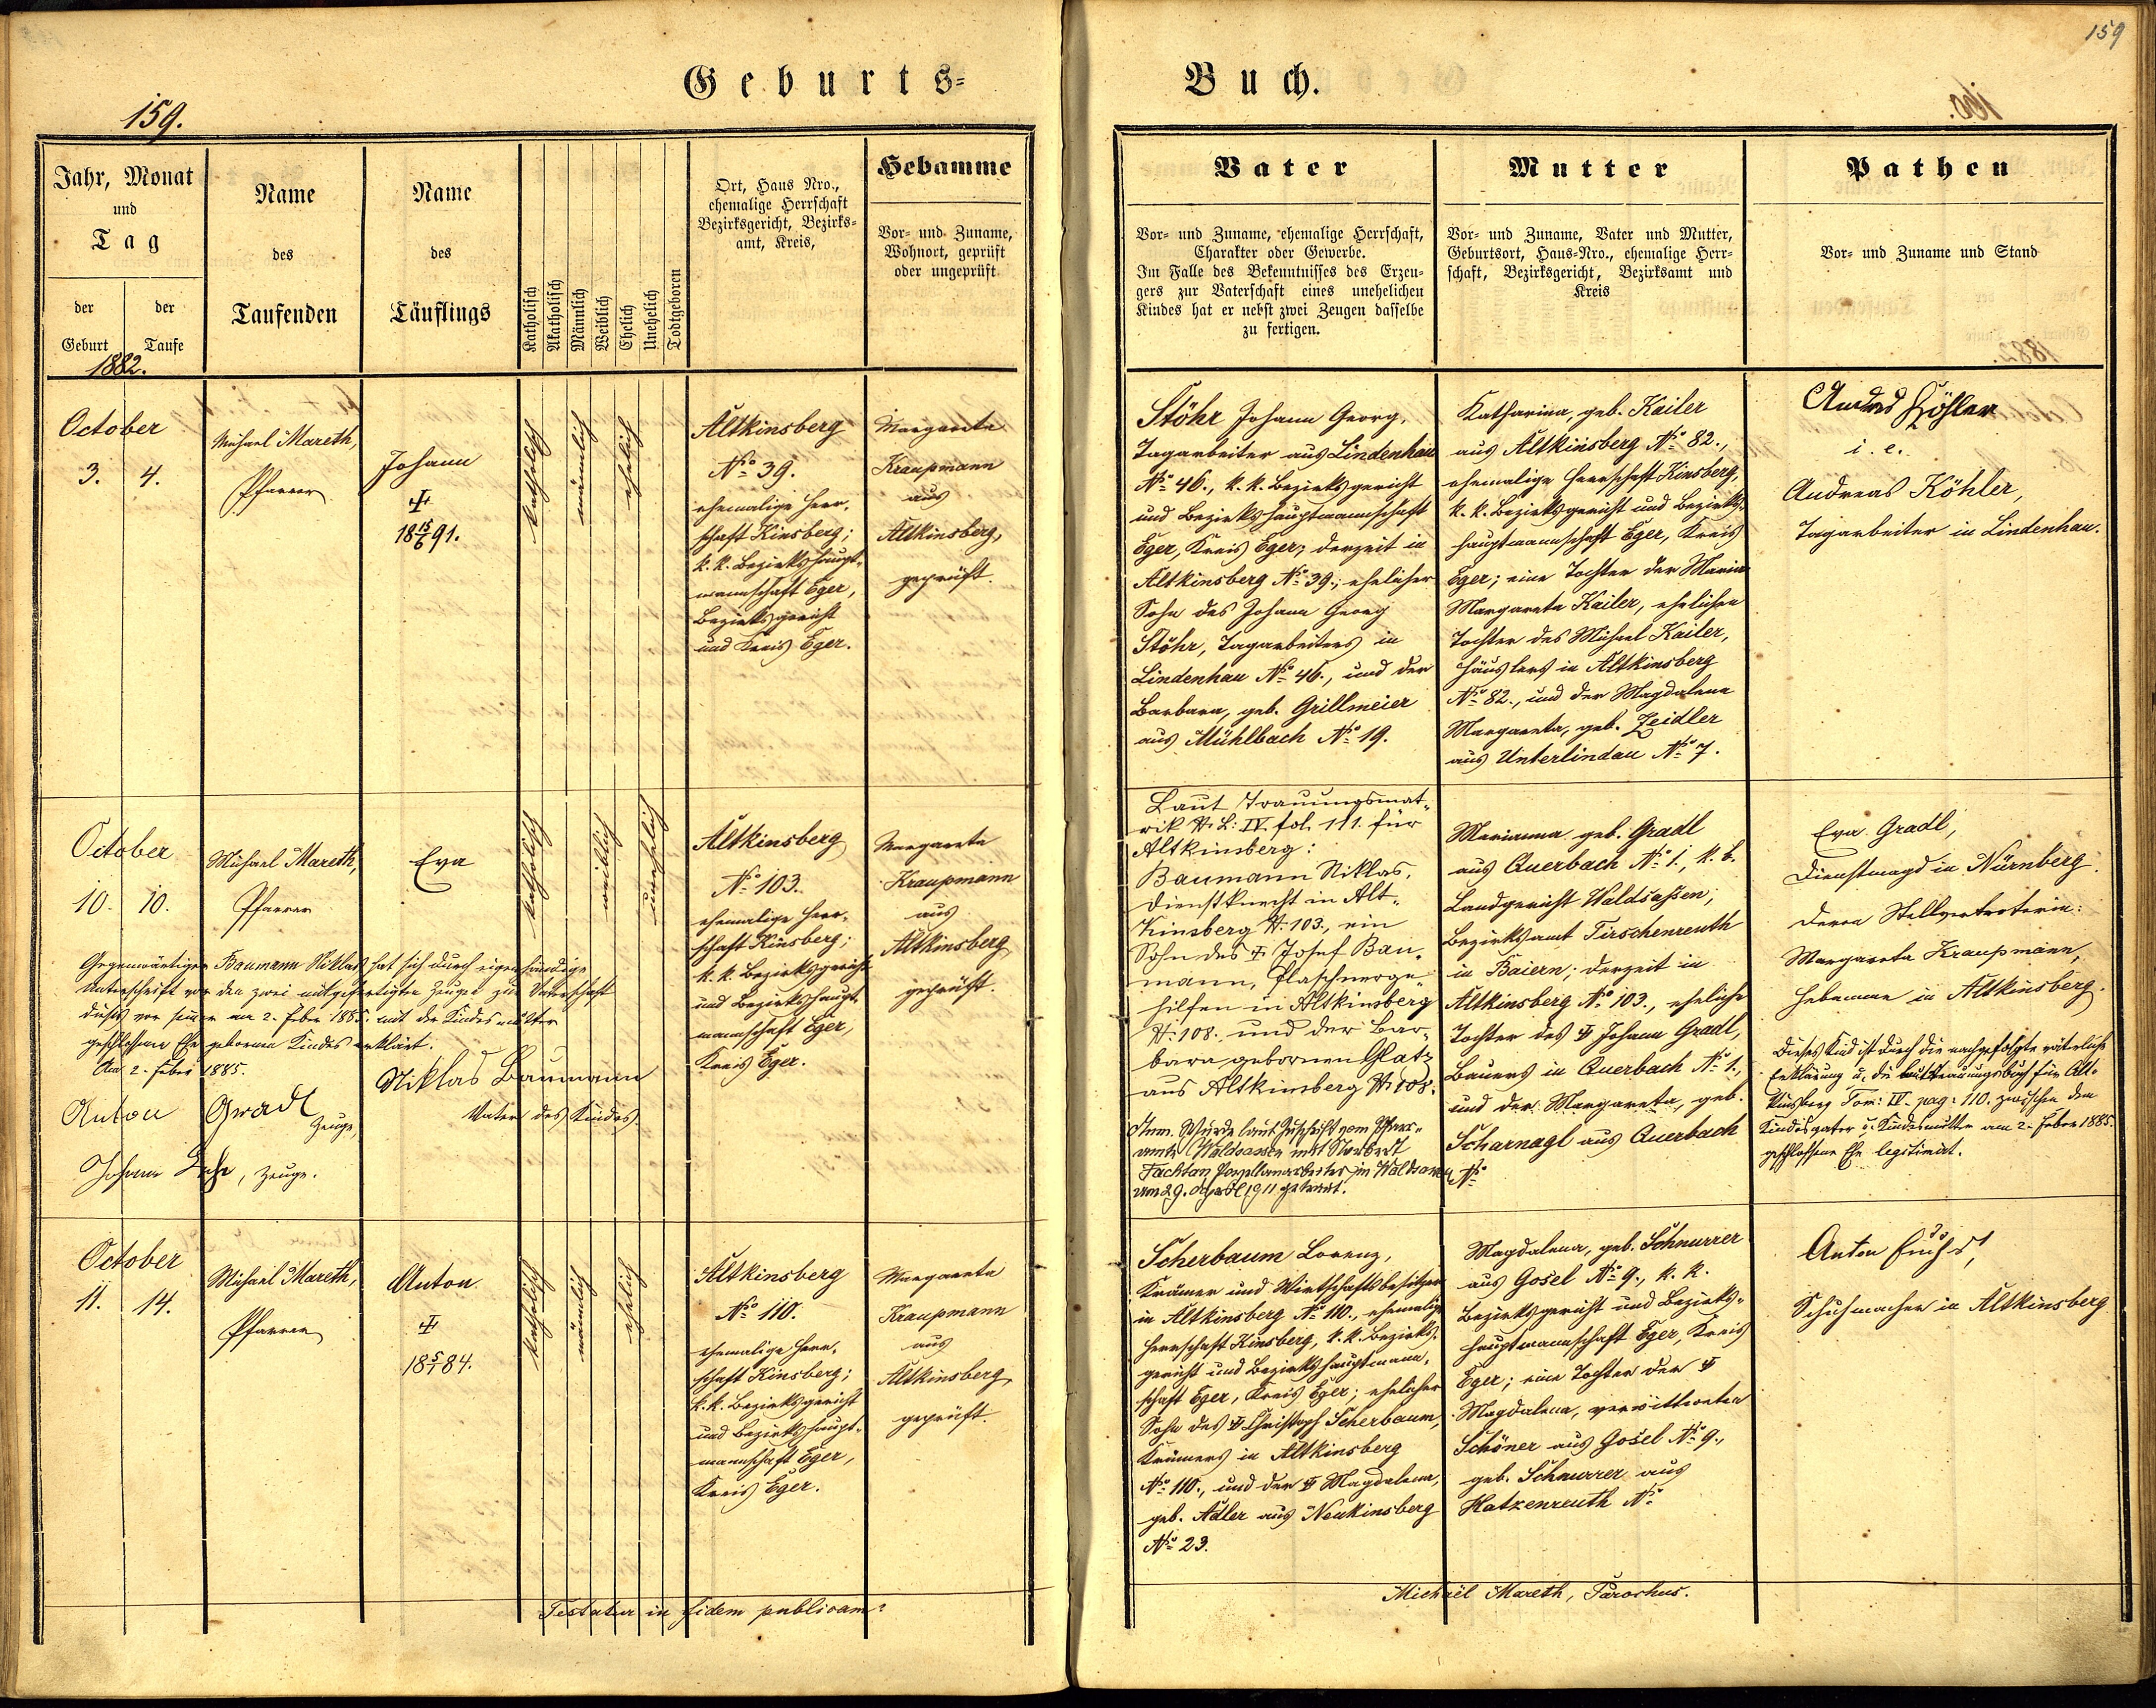 159
Geburts=
Buch.
159.
Jahr, Monat
und
Tag
der
Geburt
der
Taufe
Name
des
Taufenden
Name
des
Täuflings
Katholisch
Akatholisch
Männlich
Weiblich
Ehelich
Unehelich
Todtgeboren
Ort, Haus Nro.,
ehemalige Herrschaft
Bezirksgericht, Bezirks=
amt, Kreis,
Hebamme
Vor= und Zuname,
Wohnort, geprüft
oder ungeprüft
Vater
Vor= und Zuname, ehemalige Herrschaft,
Charakter oder Gewerbe.
Im Falle des Bekenntnisses des Erzeu=
gers zur Vaterschaft eines unehelichen
Kindes hat er nebst zwei Zeugen dasselbe
zu fertigen.
Mutter
Vor= und Zuname, Vater und Mutter,
Geburtsort, Haus=Nro., ehemalige Herr=
schaft, Bezirksgericht, Bezirksamt und
Kreis
Pathen
Vor= und Zuname und Stand
1882.
October
3. 4.
Michael Mareth,
Pfarrer
Johann
18 15/6 91.
katholisch
männlich
ehelich
Altkinsberg
No 39.
ehemalige Herr=
schaft Kinsberg;
k. k. Bezirkshaupt=
mannschaft Eger,
Bezirksgericht
und Kreis Eger.
Margareta
Kraupmann
aus
Altkinsberg,
geprüft.
Stöhr Johann Georg,
Tagarbeiter aus Lindenhau
No 46., k. k. Bezirksgericht
und Bezirkshauptmannschaft
Eger, Kreis Eger; derzeit in
Altkinsberg No 39.; ehelicher
Sohn des Johann Georg
Stöhr, Tagarbeiters in
Lindenhau No 46., und der
Barbara, geb. Grillmeier
aus Mühlbach No 19.
Katharina, geb. Kailer
aus Altkinsberg No 82.,
ehemalige Herrschaft Kinsberg,
k. k. Bezirksgericht und Bezirks=
hauptmannschaft Eger, Kreis
Eger; eine Tochter der Maria
Margareta Kailer, ehelichen
Tochter des Michael Kailer,
Häuslers in Altkinsberg
No 82., und der Magdalena
Margareta, geb. Zeidler
aus Unterlindau No 7.
Andreas Köhler
i. e.
Andreas Köhler,
Tagarbeiter in Lindenhau.
October
10. 10.
Michael Mareth,
Pfarrer
Eva
katholisch
weiblich
unehelich
Altkinsberg
No 103.
ehemalige Herr=
schaft Kinsberg;
k. k. Bezirksgericht
und Bezirkshaupt=
mannschaft Eger,
Kreis Eger.
Margareta
Kraupmann
aus
Altkinsberg
geprüft.
Gegenwärtiger Baumann Niklas hat sich durch eigenhändige
Unterschrift vor den zwei mitgefertigten Zeugen zur Vaterschaft
dieses vor seiner am 2. Feber 1885. mit der Kindesmutter
geschlossenen Ehe geborenen Kindes erklärt.
Am 2. Feber 1885.
Niklas Baumann
Vater des Kindes.
Anton Gradl
Zeuge,
Johann , Zeuge.
Laut Trauungsmat=
rik N. L: IV. fol. 111. für
Altkinsberg:
Baumann Niklas,
Dienstknecht in Alt=
Kinsberg N. 103., ein
Sohn des Josef Bau=
mann, Flaschnerge=
hilfen in Altkinsberg
N. 108. und der Bar=
bara gebornen Glatz
aus Altkinsberg N. 108.
Anm. Wurde laut Zuschrift vom Pfarr=
amte Waldsassen mit Norbert
Fachtan Porzellanarbeiter in Waldsassen
am 29. April 1911 getraut.
Marianna geb. Gradl
aus Querbach No 1., k. b.
Landgericht Waldsaßen;
Bezirksamt Tirschenreuth
in Baiern; derzeit in
Altkinsberg No 103., eheliche
Tochter des Johann Gradl,
Bauers in Querbach No 1.,
und der Margareta, geb.
Scharnagl aus Querbach
No
Eva Gradl,
Dienstmagd in Nürnberg.
Deren Stellvertreterin:
Margareta Kraupmann,
Hebamme in Altkinsberg.
Dieses Kind ist durch die nachgefolgte väterliche
Erklärung u. die laut Trauungsbuch für Alt=
kinsberg Tom: IV. pag: 110. zwischen dem
Kindesvater u. Kindesmutter am 2. Feber 1885.
geschlossene Ehe legitimirt.
October
11. 14.
Michael Mareth,
Pfarrer
Anton
18 5/1 84.
katholisch
männlich
ehelich
Altkinsberg
No 110.
ehemalige Herr=
schaft Kinsberg;
k. k. Bezirksgericht
und Bezirkshaupt=
mannschaft Eger,
Kreis Eger.
Margareta
Kraupmann
aus
Altkinsberg
geprüft.
Scherbaum Lorenz,
Krämer und Wirtschaftsbesitzer
in Altkinsberg No 110., ehemalige
Herrschaft Kinsberg, k. k. Bezirks=
gericht und Bezirkshauptmann=
schaft Eger, Kreis Eger; ehelicher
Sohn des Christoph Scherbaum,
Krämers in Altkinsberg
No 110., und der Magdalena,
geb. Adler aus Neukinsberg
No 23.
Magdalena, geb. Schnurrer
aus Gosel No 9., k. k.
Bezirksgericht und Bezirks=
hauptmannschaft Eger, Kreis
Eger; eine Tochter der
Magdalena, verwittweten
Schöner aus Gosel No 9.,
geb. Schnurrer aus
Hatzenreuth No
Anton Fuchs,
Schuhmacher in Altkinsberg
Testatur in fidem publicam:
Michaël Mareth, Parochus.